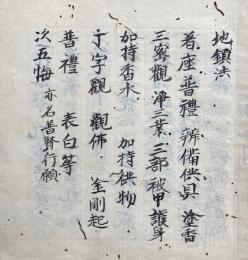 地鎮法
着座普禮 辨備供具 塗香
三密觀 淨三業 三部 被甲護身
加持香水 加持供物
𑖨字觀 觀佛 金剛起
普禮 表白等
次五悔 亦名普賢行願